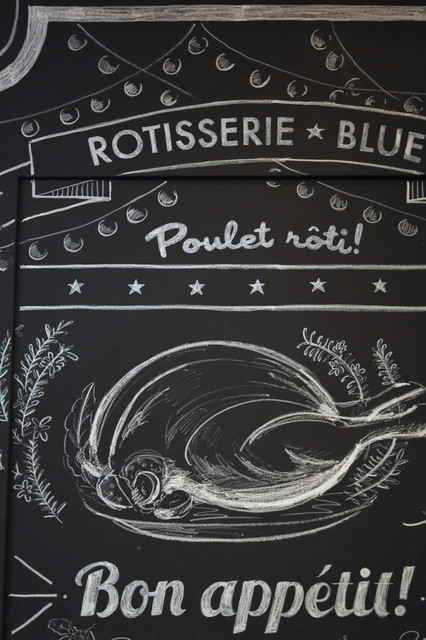 ROTISSERIE ★ BLUE
Poulet rôti!
Bon appétit!